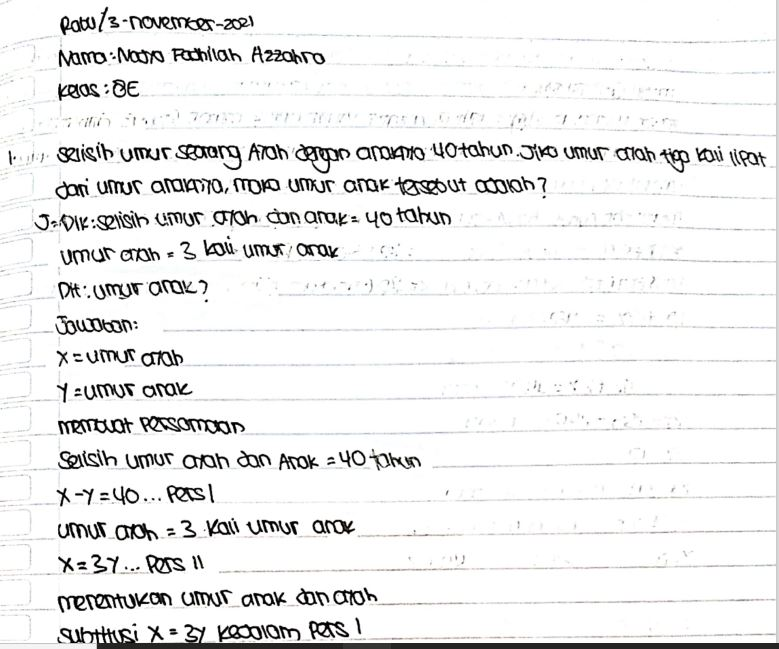 Rabu/3-november-2021
Nama: Nadya Fadhilah Azzahra
Kelas: 8E
1. Selisih umur seorang Ayah dengan anaknya 40 tahun. Jika umur ayah tiga kali lipat
dari umur anaknya, maka umur anak tersebut adalah?
J= Dik: selisih umur ayah dan anak = 40 tahun
umur ayah = 3 kali umur anak
Dit: umur anak?
Jawaban:
X = umur ayah
Y = umur anak
membuat persamaan
Selisih umur ayah dan Anak = 40 tahun
X-Y = 40 ... Pers I
umur ayah = 3 kali umur anak
X = 3Y ... Pers II
menentukan umur anak dan ayah
subtitusi X = 3Y kedalam Pers I